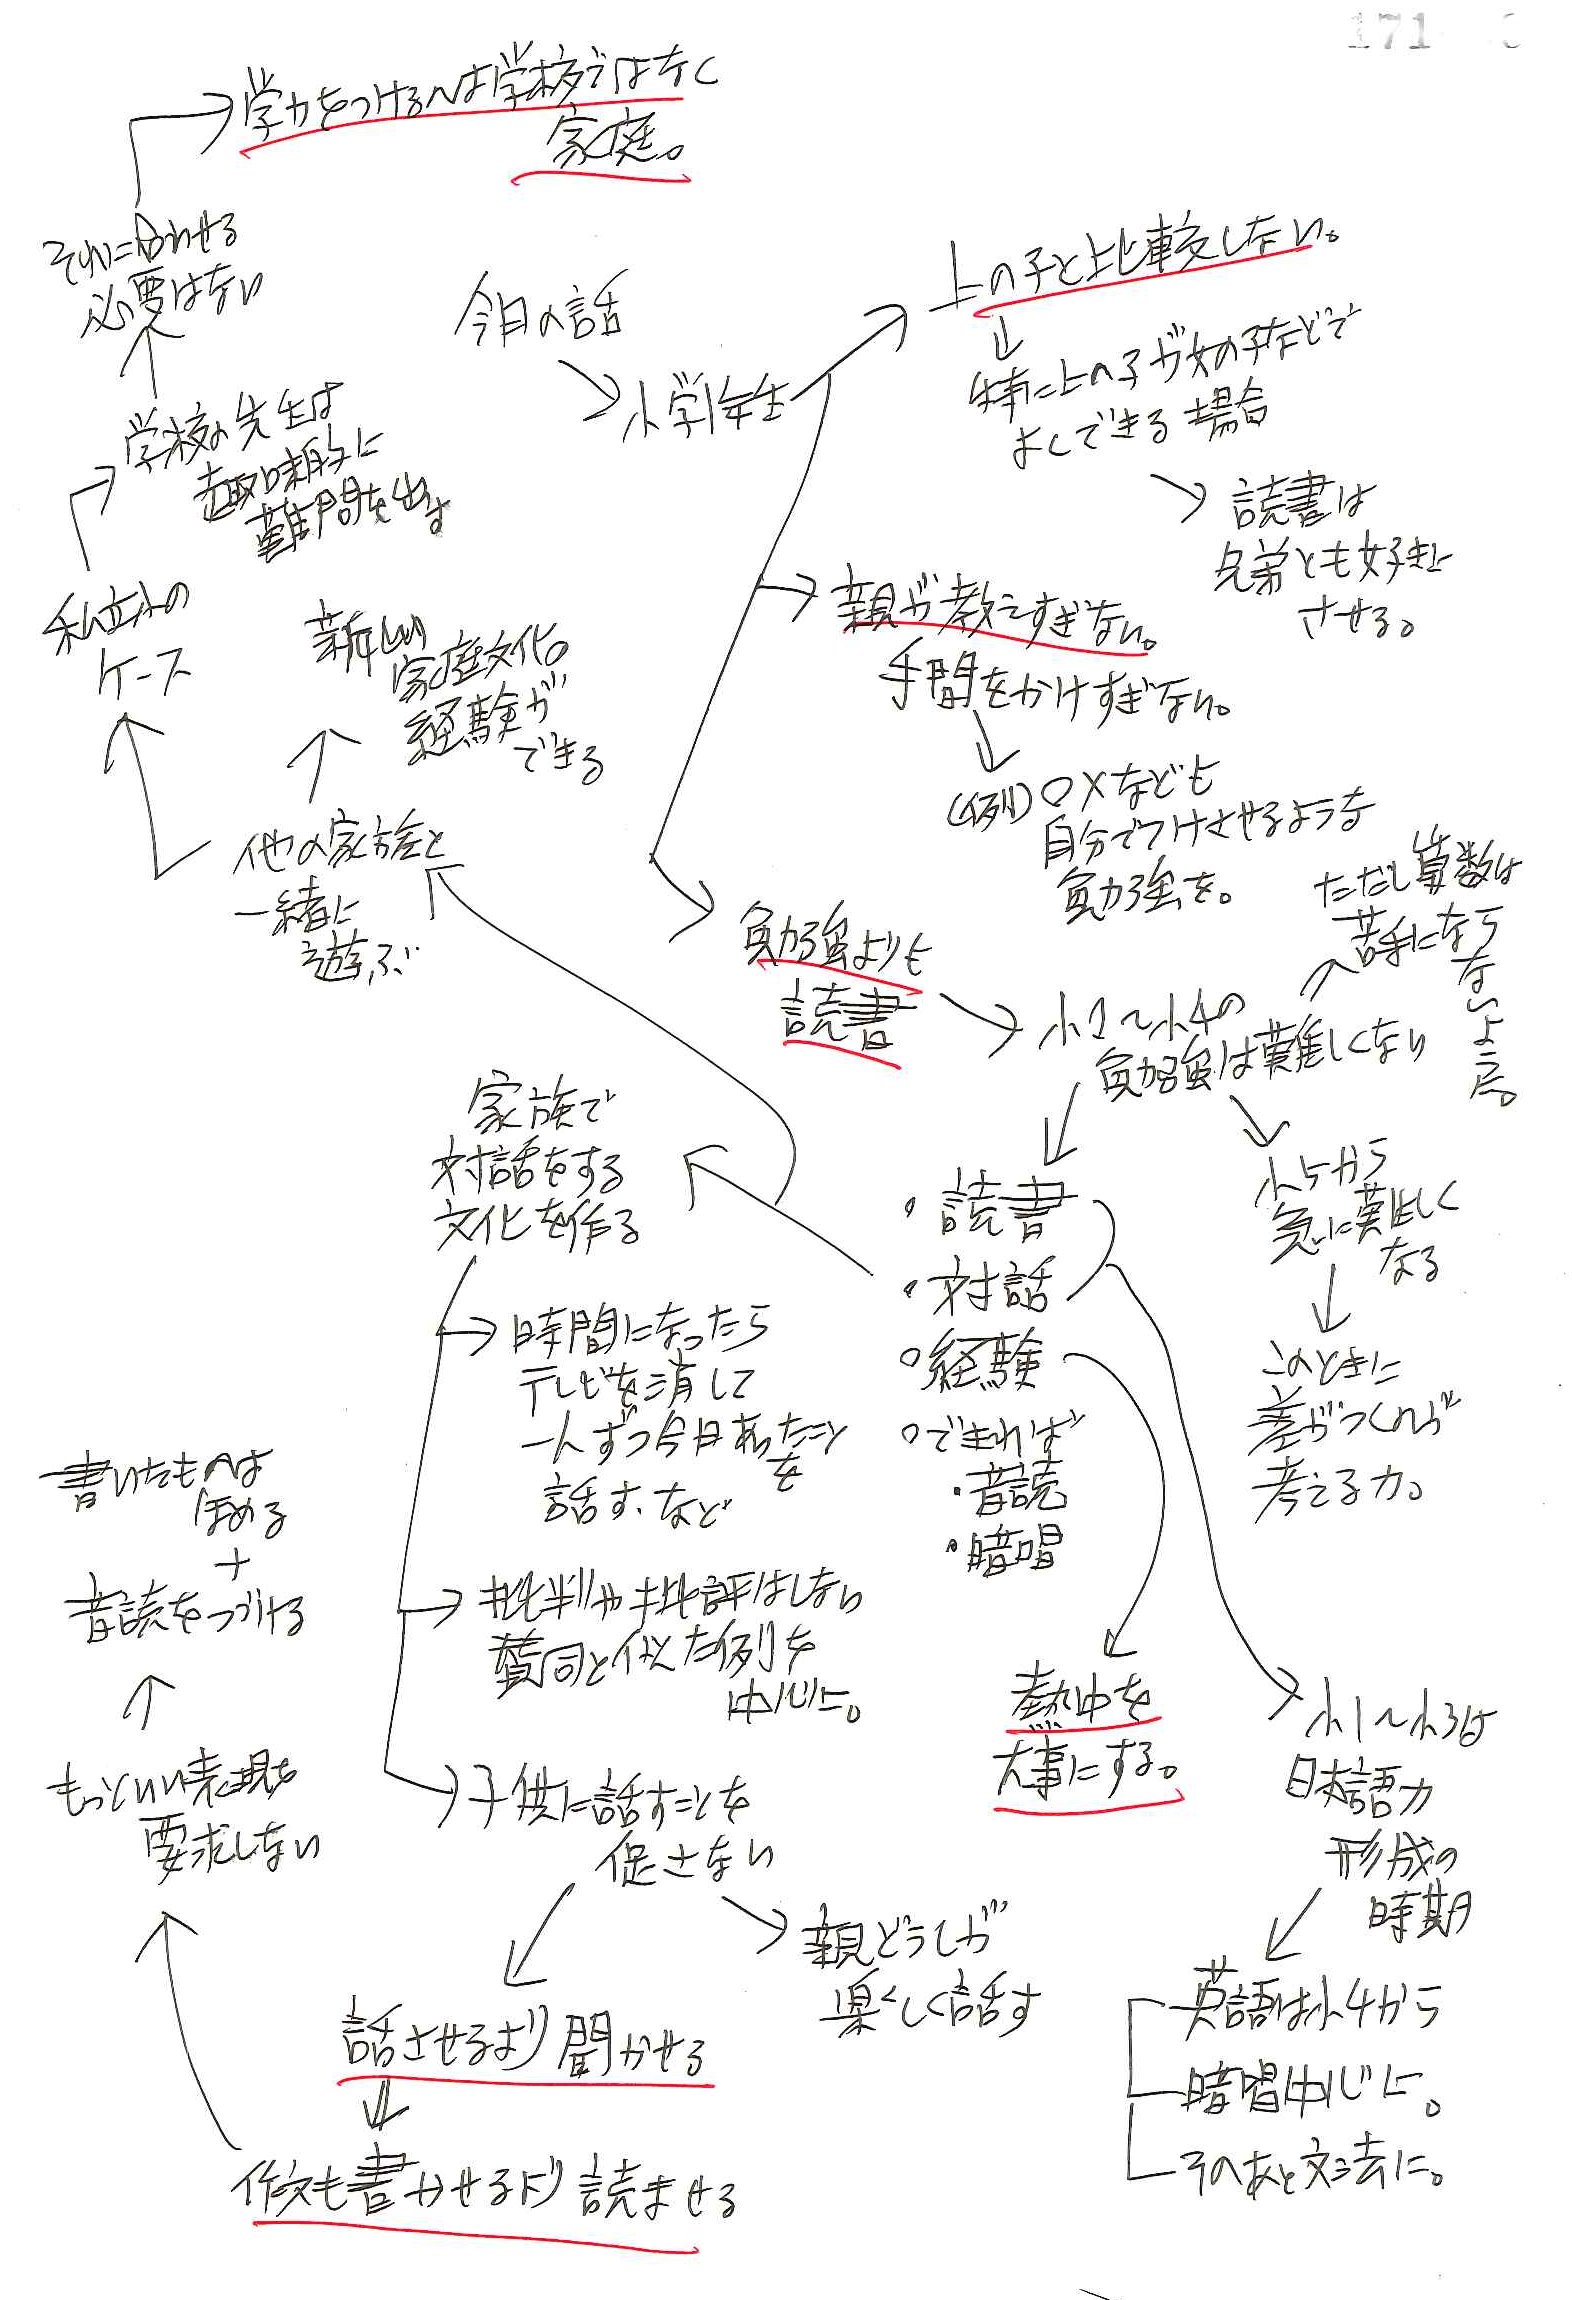 171
今日の話
小学1年生
上の子と比較しない。
特に上の子が女の子などで
よくできる場合
読書は
兄弟とも好きに
させる。
親が教えすぎない。
手間をかけすぎない。
(例)○×なども
自分でつけさせるような
勉強を。
勉強よりも
読書
小1〜小4の
勉強は難しくない
ただし算数は
苦手になら
ないように。
小5から
急に難しく
なる
このときに
差がつくのが
考える力。
・読書
・対話
・経験
・できれば
・音読
・暗唱
熱中を
大事にする。
小1〜小3は
日本語力
形成の
時期
英語は小4から
暗唱中心に。
そのあと文法に。
家族で
対話をする
文化を作る
時間になったら
テレビを消して
一人ずつ今日あったこと
を
話す、など
批判や批評はしない
賛同と似た例を
中心に。
子供に話すことを
促さない
親どうしが
楽しく話す
話させるより聞かせる
作文も書かせるより読ませる
もっといい表現を
要求しない
書いたものは
ほめる
＋
音読をつづける
他の家族と
一緒に
遊ぶ
新しい
家庭文化。
経験が
できる
私立小の
ケース
学校の先生は
趣味的に
難問を出す
それに合わせる
必要はない
学力をつけるのは学校ではなく
家庭。